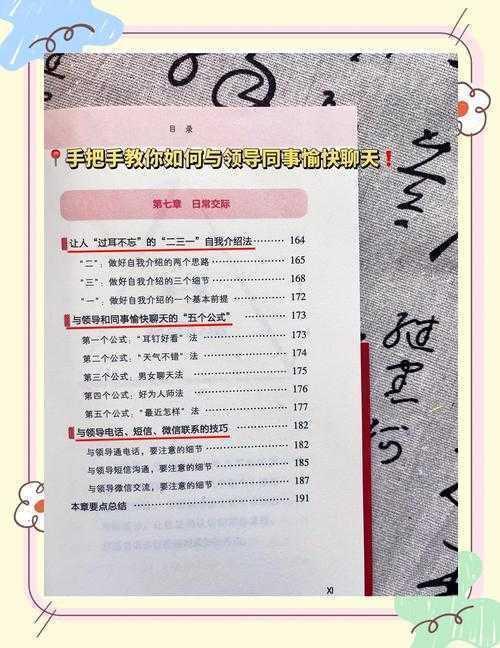 目 录
手把手教你如何与领导同事愉快聊天❗
第七章 日常交际
让人“过耳不忘”的“二三一”自我介绍法 ………… 164
“二”：做好自我介绍的两个思路 ………… 165
“三”：做好自我介绍的三个细节 ………… 168
“一”：做好自我介绍的一个基本前提 ………… 172
与领导和同事愉快聊天的“五个公式” ………… 173
第一个公式：“耳钉好看”法 ………… 173
第二个公式：“天气不错”法 ………… 174
第三个公式：男女聊天法 ………… 175
第四个公式：好为人师法 ………… 176
第五个公式：“最近怎样”法 ………… 177
与领导电话、短信、微信联系的技巧 ………… 182
与领导通电话，要注意的细节 ………… 182
与领导短信沟通，要注意的细节 ………… 185
与领导微信交流，要注意的细节 ………… 187
本章要点总结 ………… 191
XI